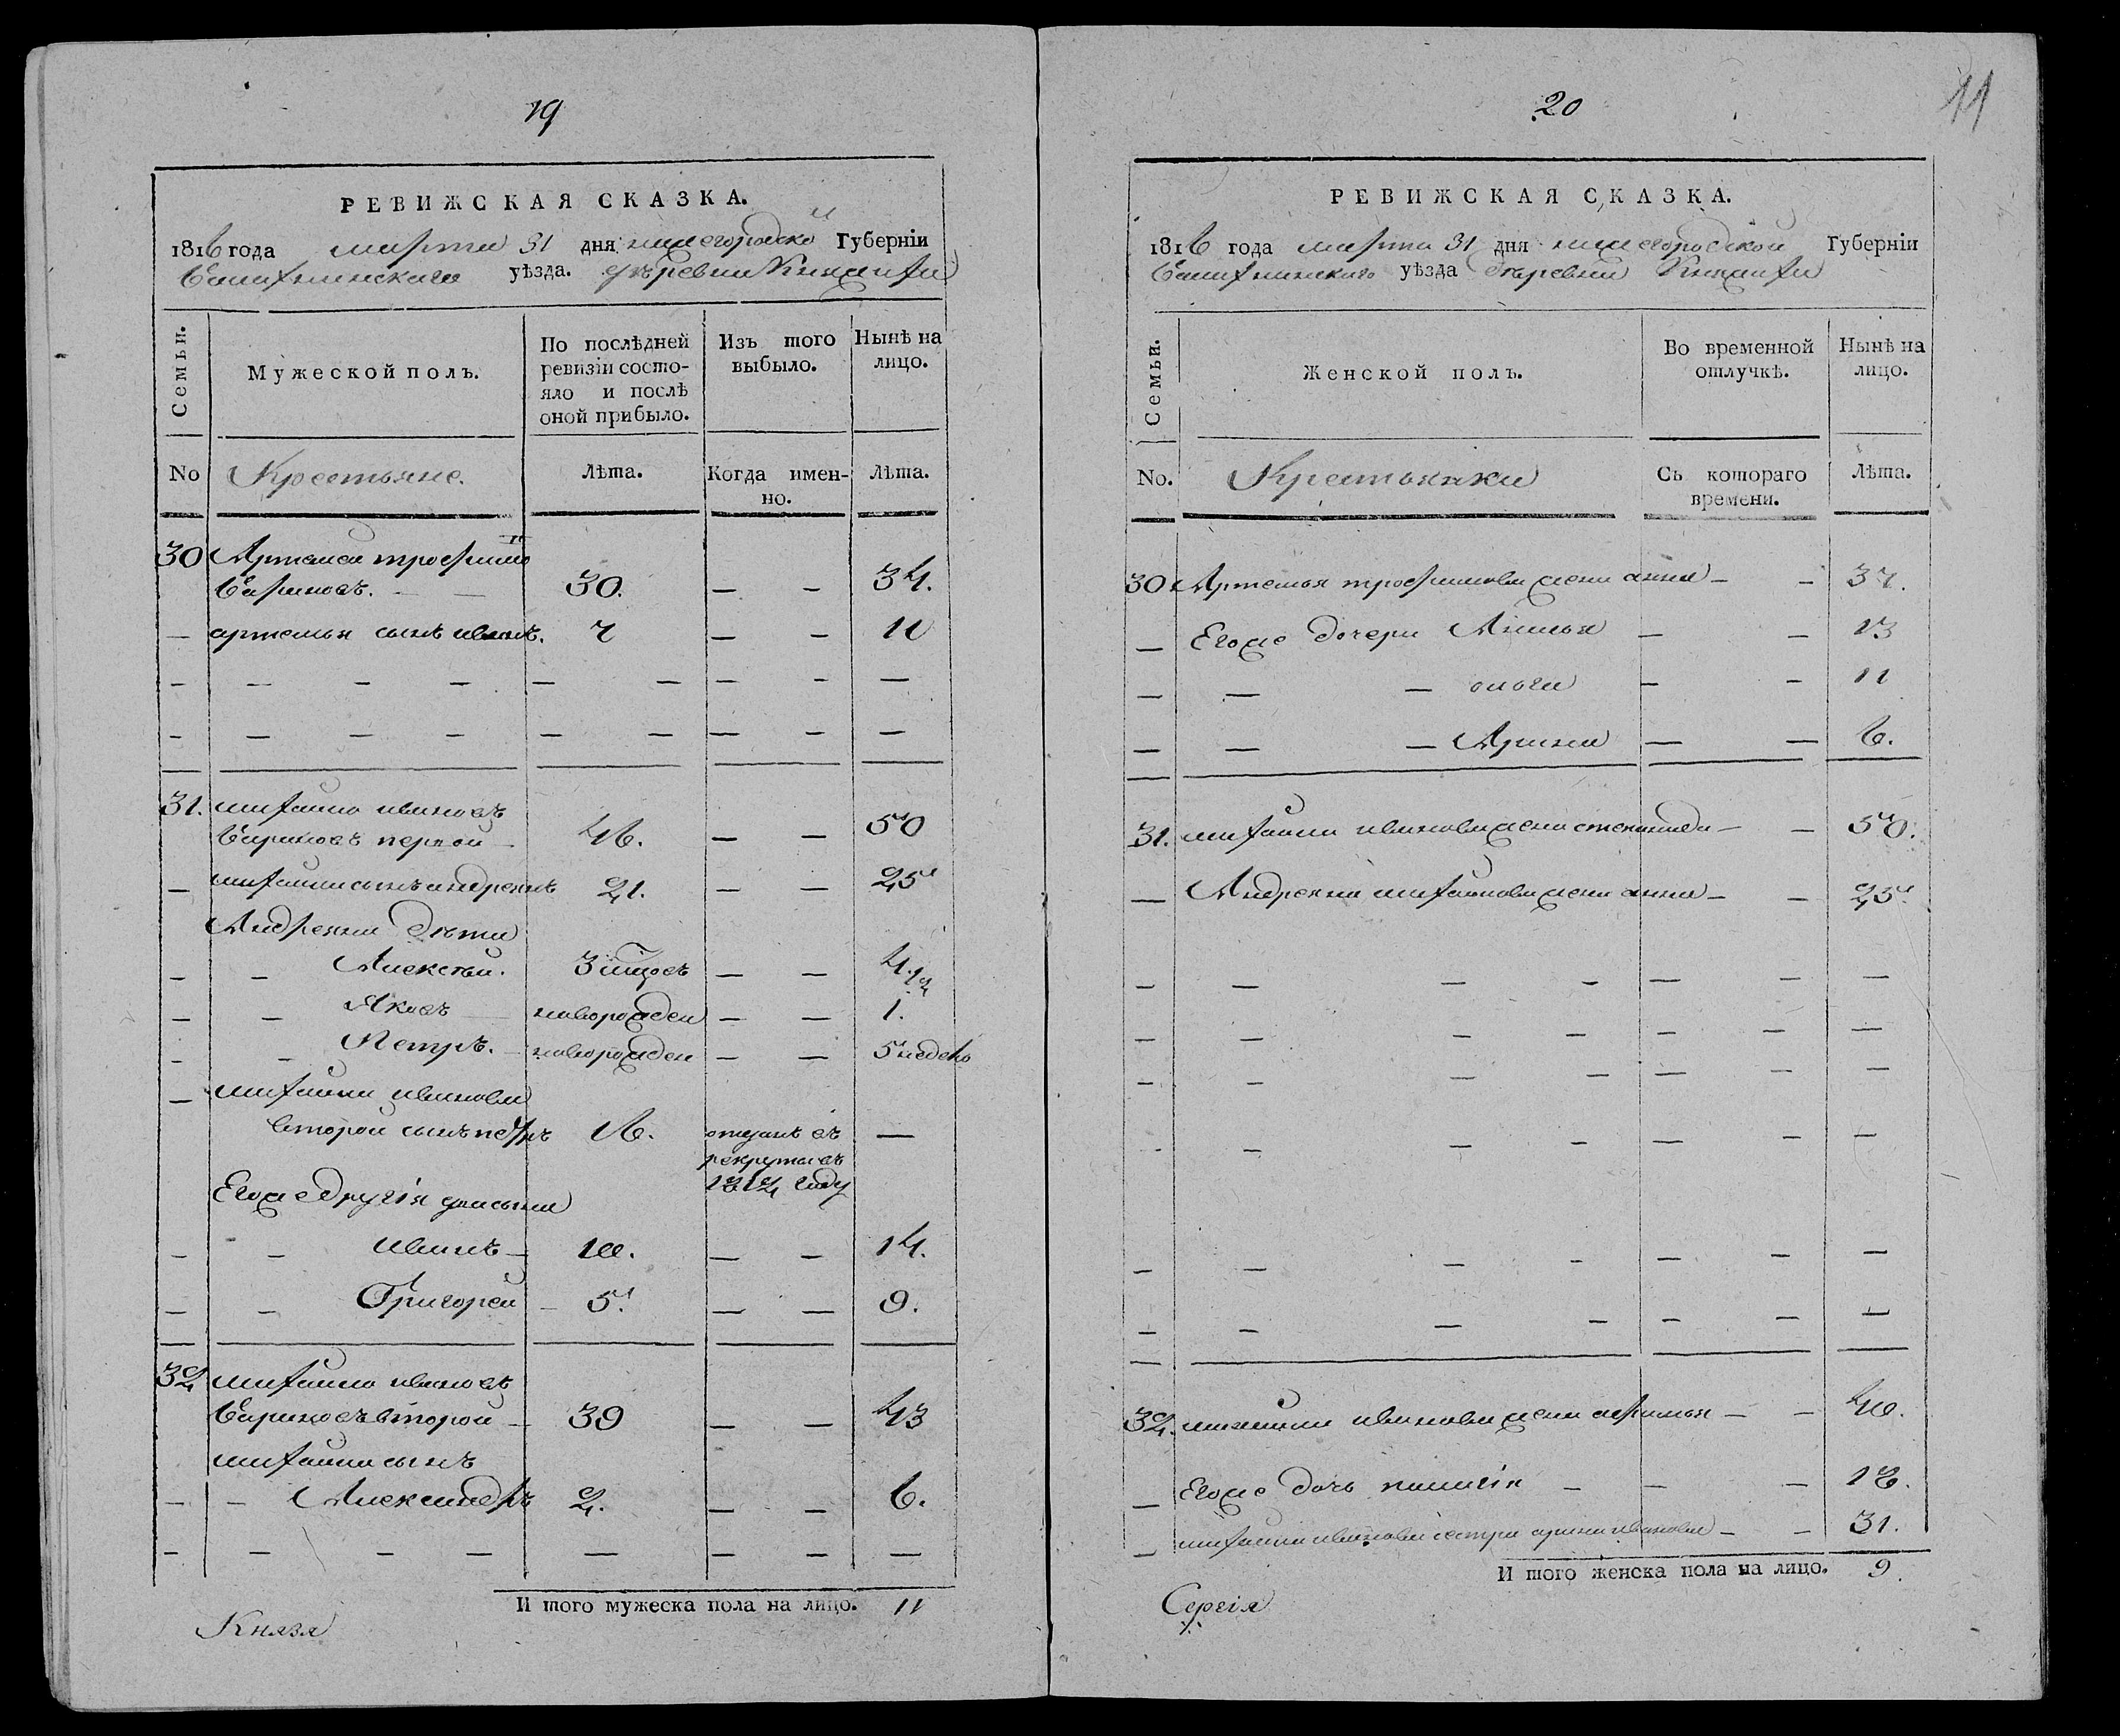 19
РЕВИЖСКАЯ СКАЗКА.
1816 года марта 31 дня нижегородской Губерніи
уѣзда. деревни
Семьи. Мужеской полъ. По послѣдней ревизіи состояло и послѣ оной прибыло. Изъ того выбыло. Нынѣ на лицо.
No Крестьяне. Лѣта. Когда именно. Лѣта.
30 Артемей трофимовъ
Бариновъ. — 30. — — 34.
— артемья сынъ иванъ. 7 — — 11
31. михайло ивановъ
Бариновъ первой 46. — — 50
— михайла сынъ андреянъ 21. — — 25
Андреяна дѣти
— — Алексѣй. 3 мцовъ — — 4 1/2
— — Яковъ — новорожден — — 1.
— — Петръ. — новорожден — — 5 недель
— михайла иванова
второй сынъ 16. отданъ въ —
рекруты въ
1812 году
Егоже другія два сына
— — иванъ — 10. — — 14.
— — Григорей — 5. — — 9.
32 михайло ивановъ
Бариновъ второй — 39 — — 43
михайла сынъ
— — Александръ 2. — — 6.
И того мужеска пола на лицо. 11
Князя
20
11
РЕВИЖСКАЯ СКАЗКА.
1816 года марта 31 дня нижегородской Губерніи
уѣзда деревни
Семьи. Женской полъ. Во временной отлучкѣ. Нынѣ на лицо.
No. Крестьянки Съ котораго времени. Лѣта.
30 Артемья трофимова жена анна — — 37.
— Егоже дочери — — 13
— — — ольга — — 11
— — — Арина — — 6.
31. михайла иванова жена степанида — — 50.
— Андреяна михайлова жена анна — — 25.
32. михайла иванова жена — — 40.
— Егоже дочь — — — 18.
— михайла иванова сестра арина иванова — — 31.
И того женска пола на лицо. 9.
Сергія